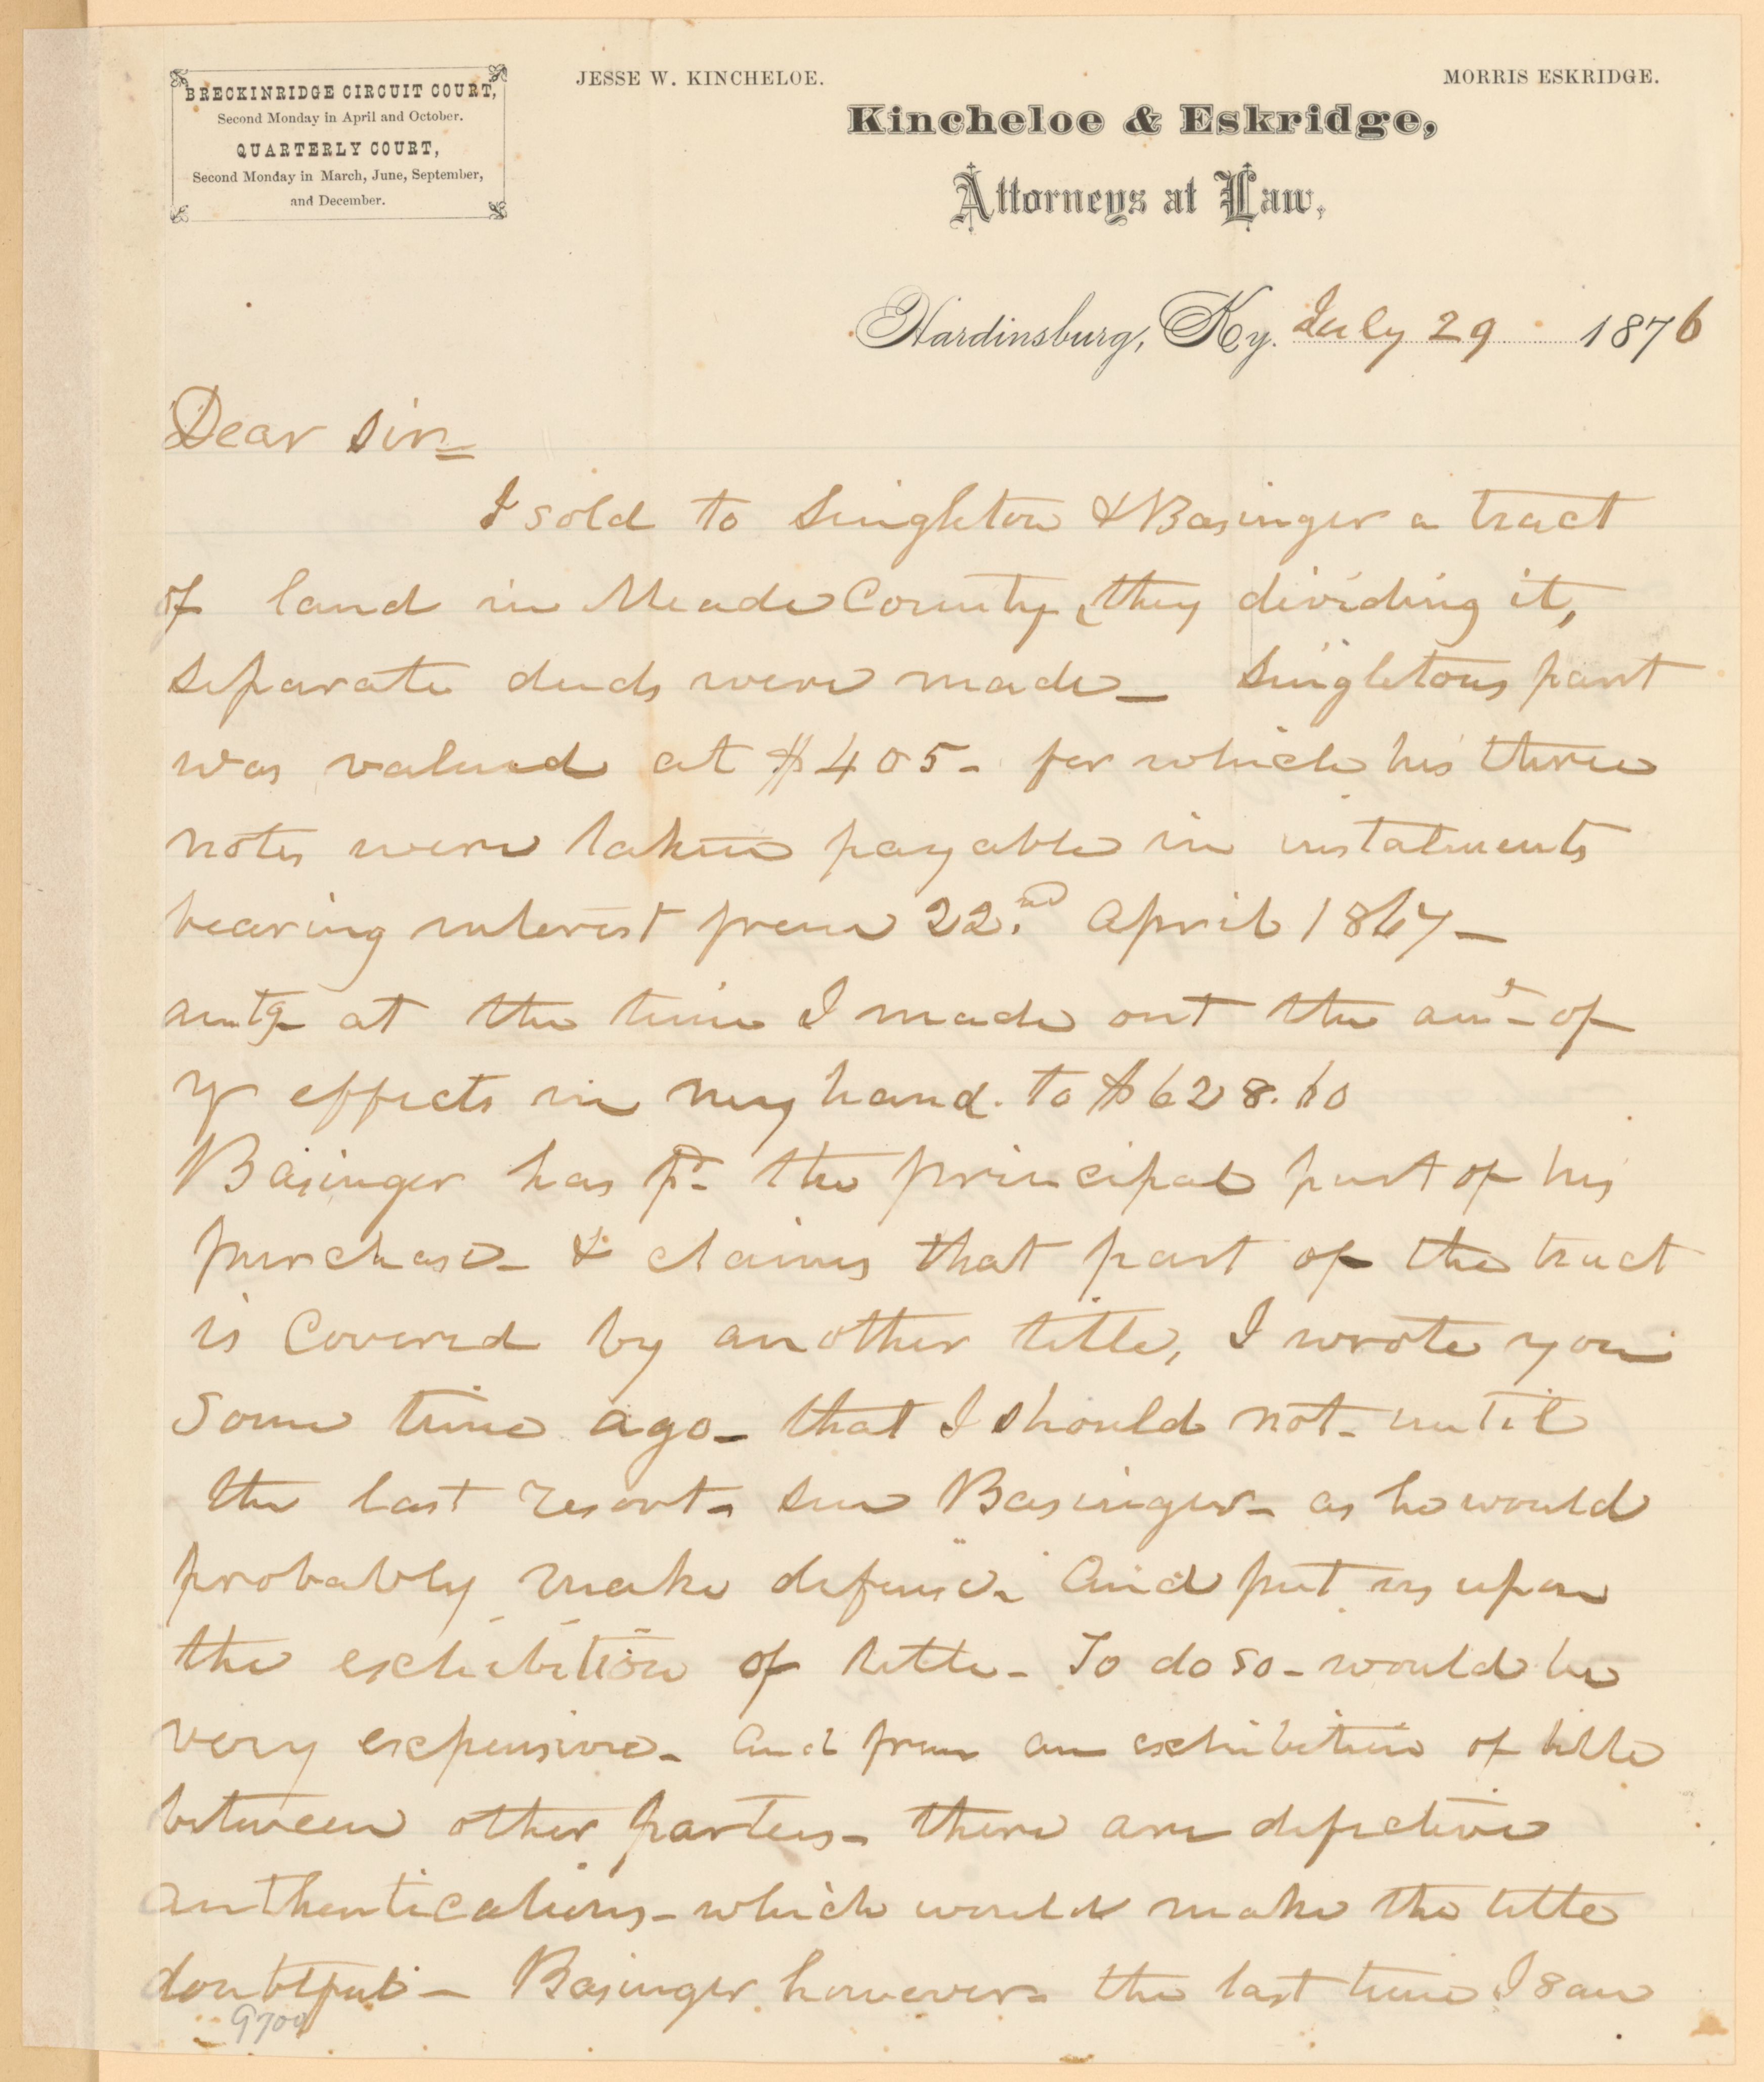 BRECKINRIDGE CIRCUIT COURT,
Second Monday in April and October.
QUARTERLY COURT,
Second Monday in March, June, September,
and December.
JESSE W. KINCHELOE.
MORRIS ESKRIDGE.
Kincheloe & Eskridge,
Attorneys at Law,
Hardinsburg, Ky. July 29 1876
Dear Sir
I sold to Singleton & Basinger a tract
of land in Meade County, they dividing it,
separate deeds were made_ Singletons part
was valued at $405- for which his three
notes were taken payable in instalments
bearing interest from 22nd April 1867_
amtg at the time I made out the amt of
yr effects in my hand. to $628.10
Basinger has pd the principal part of his
purchase_ & claims that part of the tract
is Covered by another title, I wrote you
some time ago_ that I should not_ until
the last resort_ sue Basinger_ as he would
probably make defense_ and put us upon
the exhibition of title_ To do so_ would be
very expensive_ and from an exhibition of title
between other parties_ there are defective
authentications_ which would make the title
doubtful_ Basinger however_ the last time I saw
9700